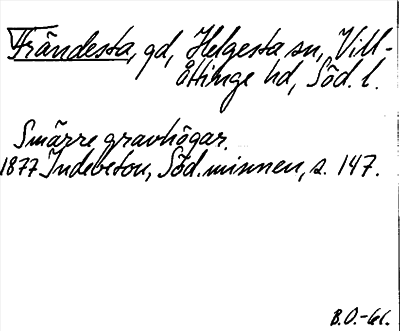 Frändesta, gd, Helgesta sn, Vill-
åttinge hd, Söd. l.
Smärre gravhögar.
1877 Indebetou, Söd. minnen, s. 147.
B.O.-61.